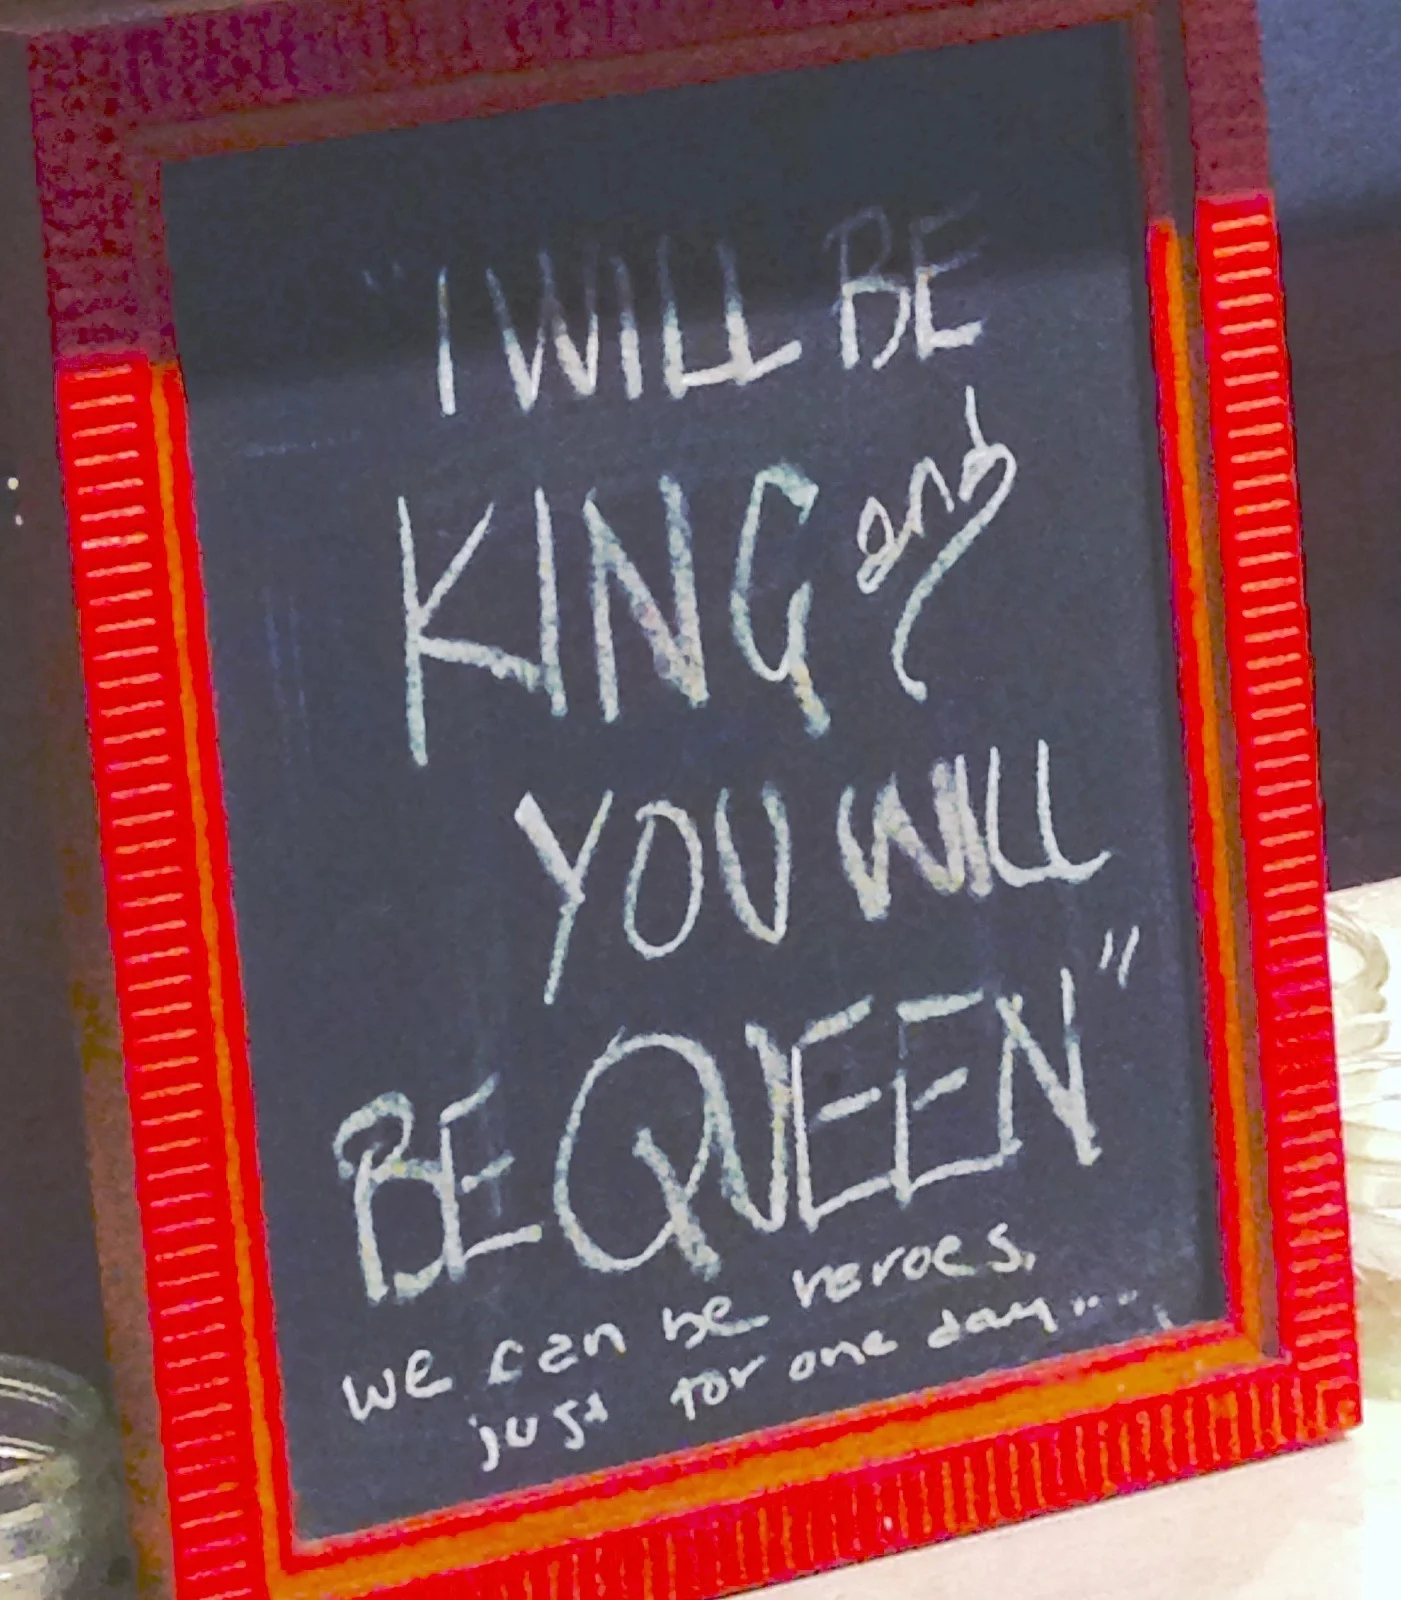 "I WILL BE
KING and
YOU WILL
BE QUEEN"
we can be heroes,
just for one day....